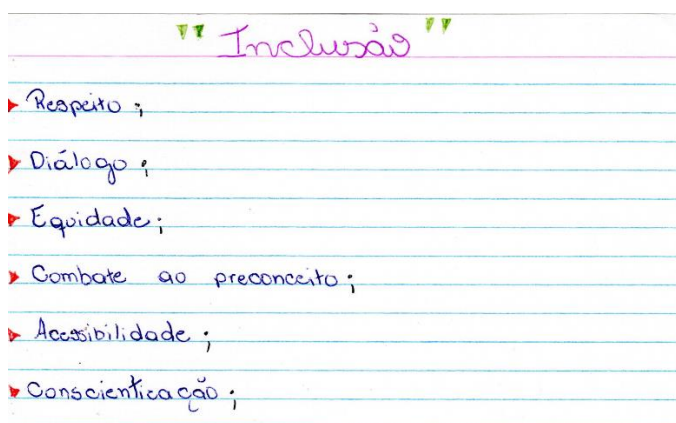 "Inclusão"
Respeito;
Diálogo;
Equidade;
Combate ao preconceito;
Acessibilidade;
Conscienticação;